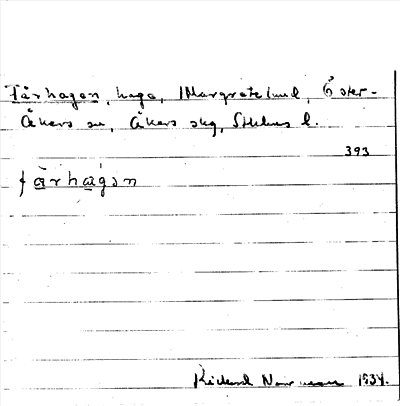 Fårhagen, hage, Margretelund, Öster-
Åkers sn, Åkers skg, Sthlms l.
393
fårhagən
Rickard 1934.